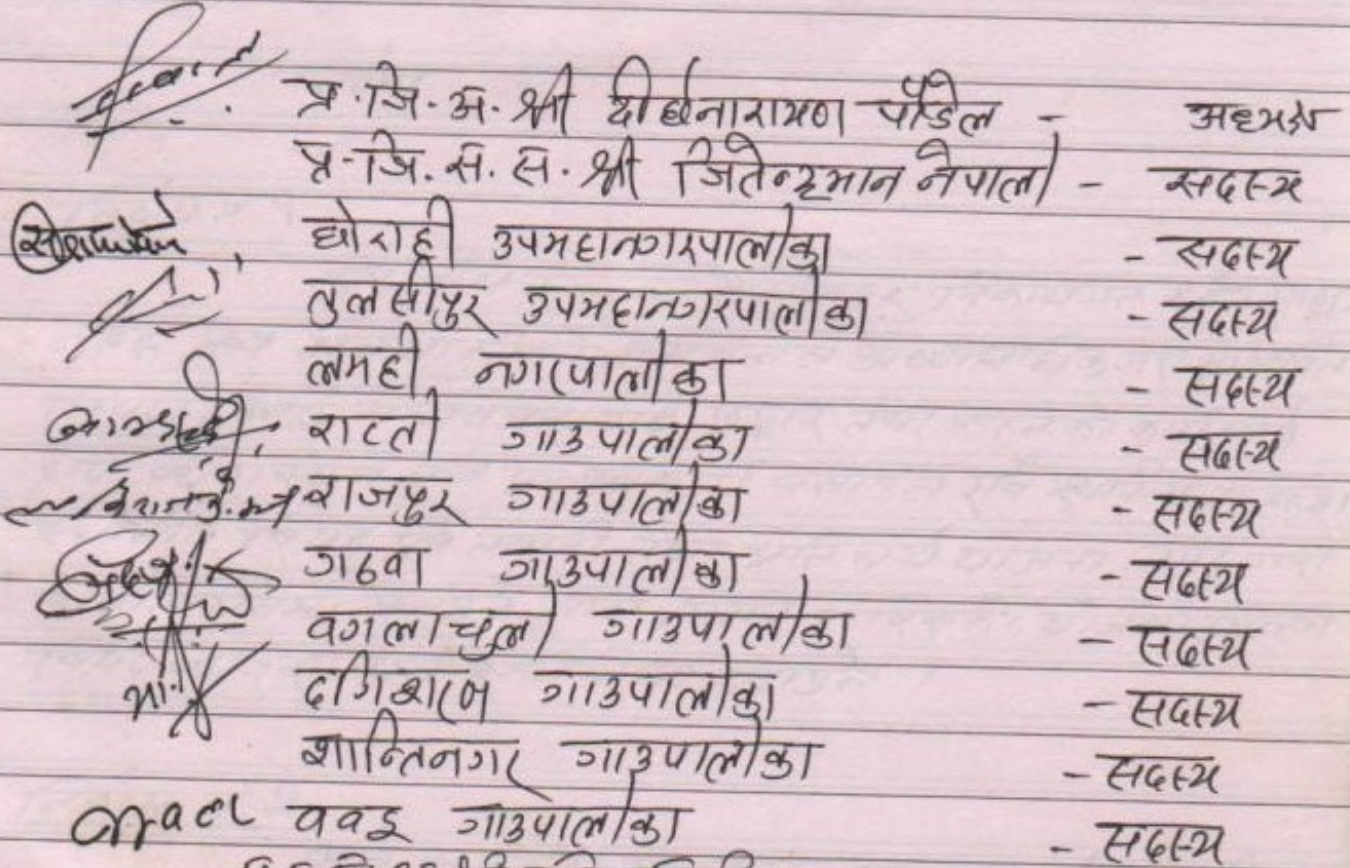 प्र.जि.अ. श्री दीर्घनारायण पौडेल - अध्यक्ष
प्र.जि.स.स. श्री जितेन्द्रमान नेपाली - सदस्य
घोराही उपमहानगरपालीका - सदस्य
तुलसीपुर उपमहानगरपालीका - सदस्य
लमही नगरपालीका - सदस्य
राप्ती गाउपालीका - सदस्य
राजपुर गाउपालीका - सदस्य
गढवा गाउपालीका - सदस्य
वगलाचुली गाउपालीका - सदस्य
दंगिशरण गाउपालीका - सदस्य
शान्तिनगर गाउपालीका - सदस्य
ववई गाउपालीका - सदस्य